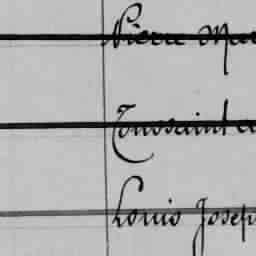 Pierre Mar
Toussaint
Louis Josep